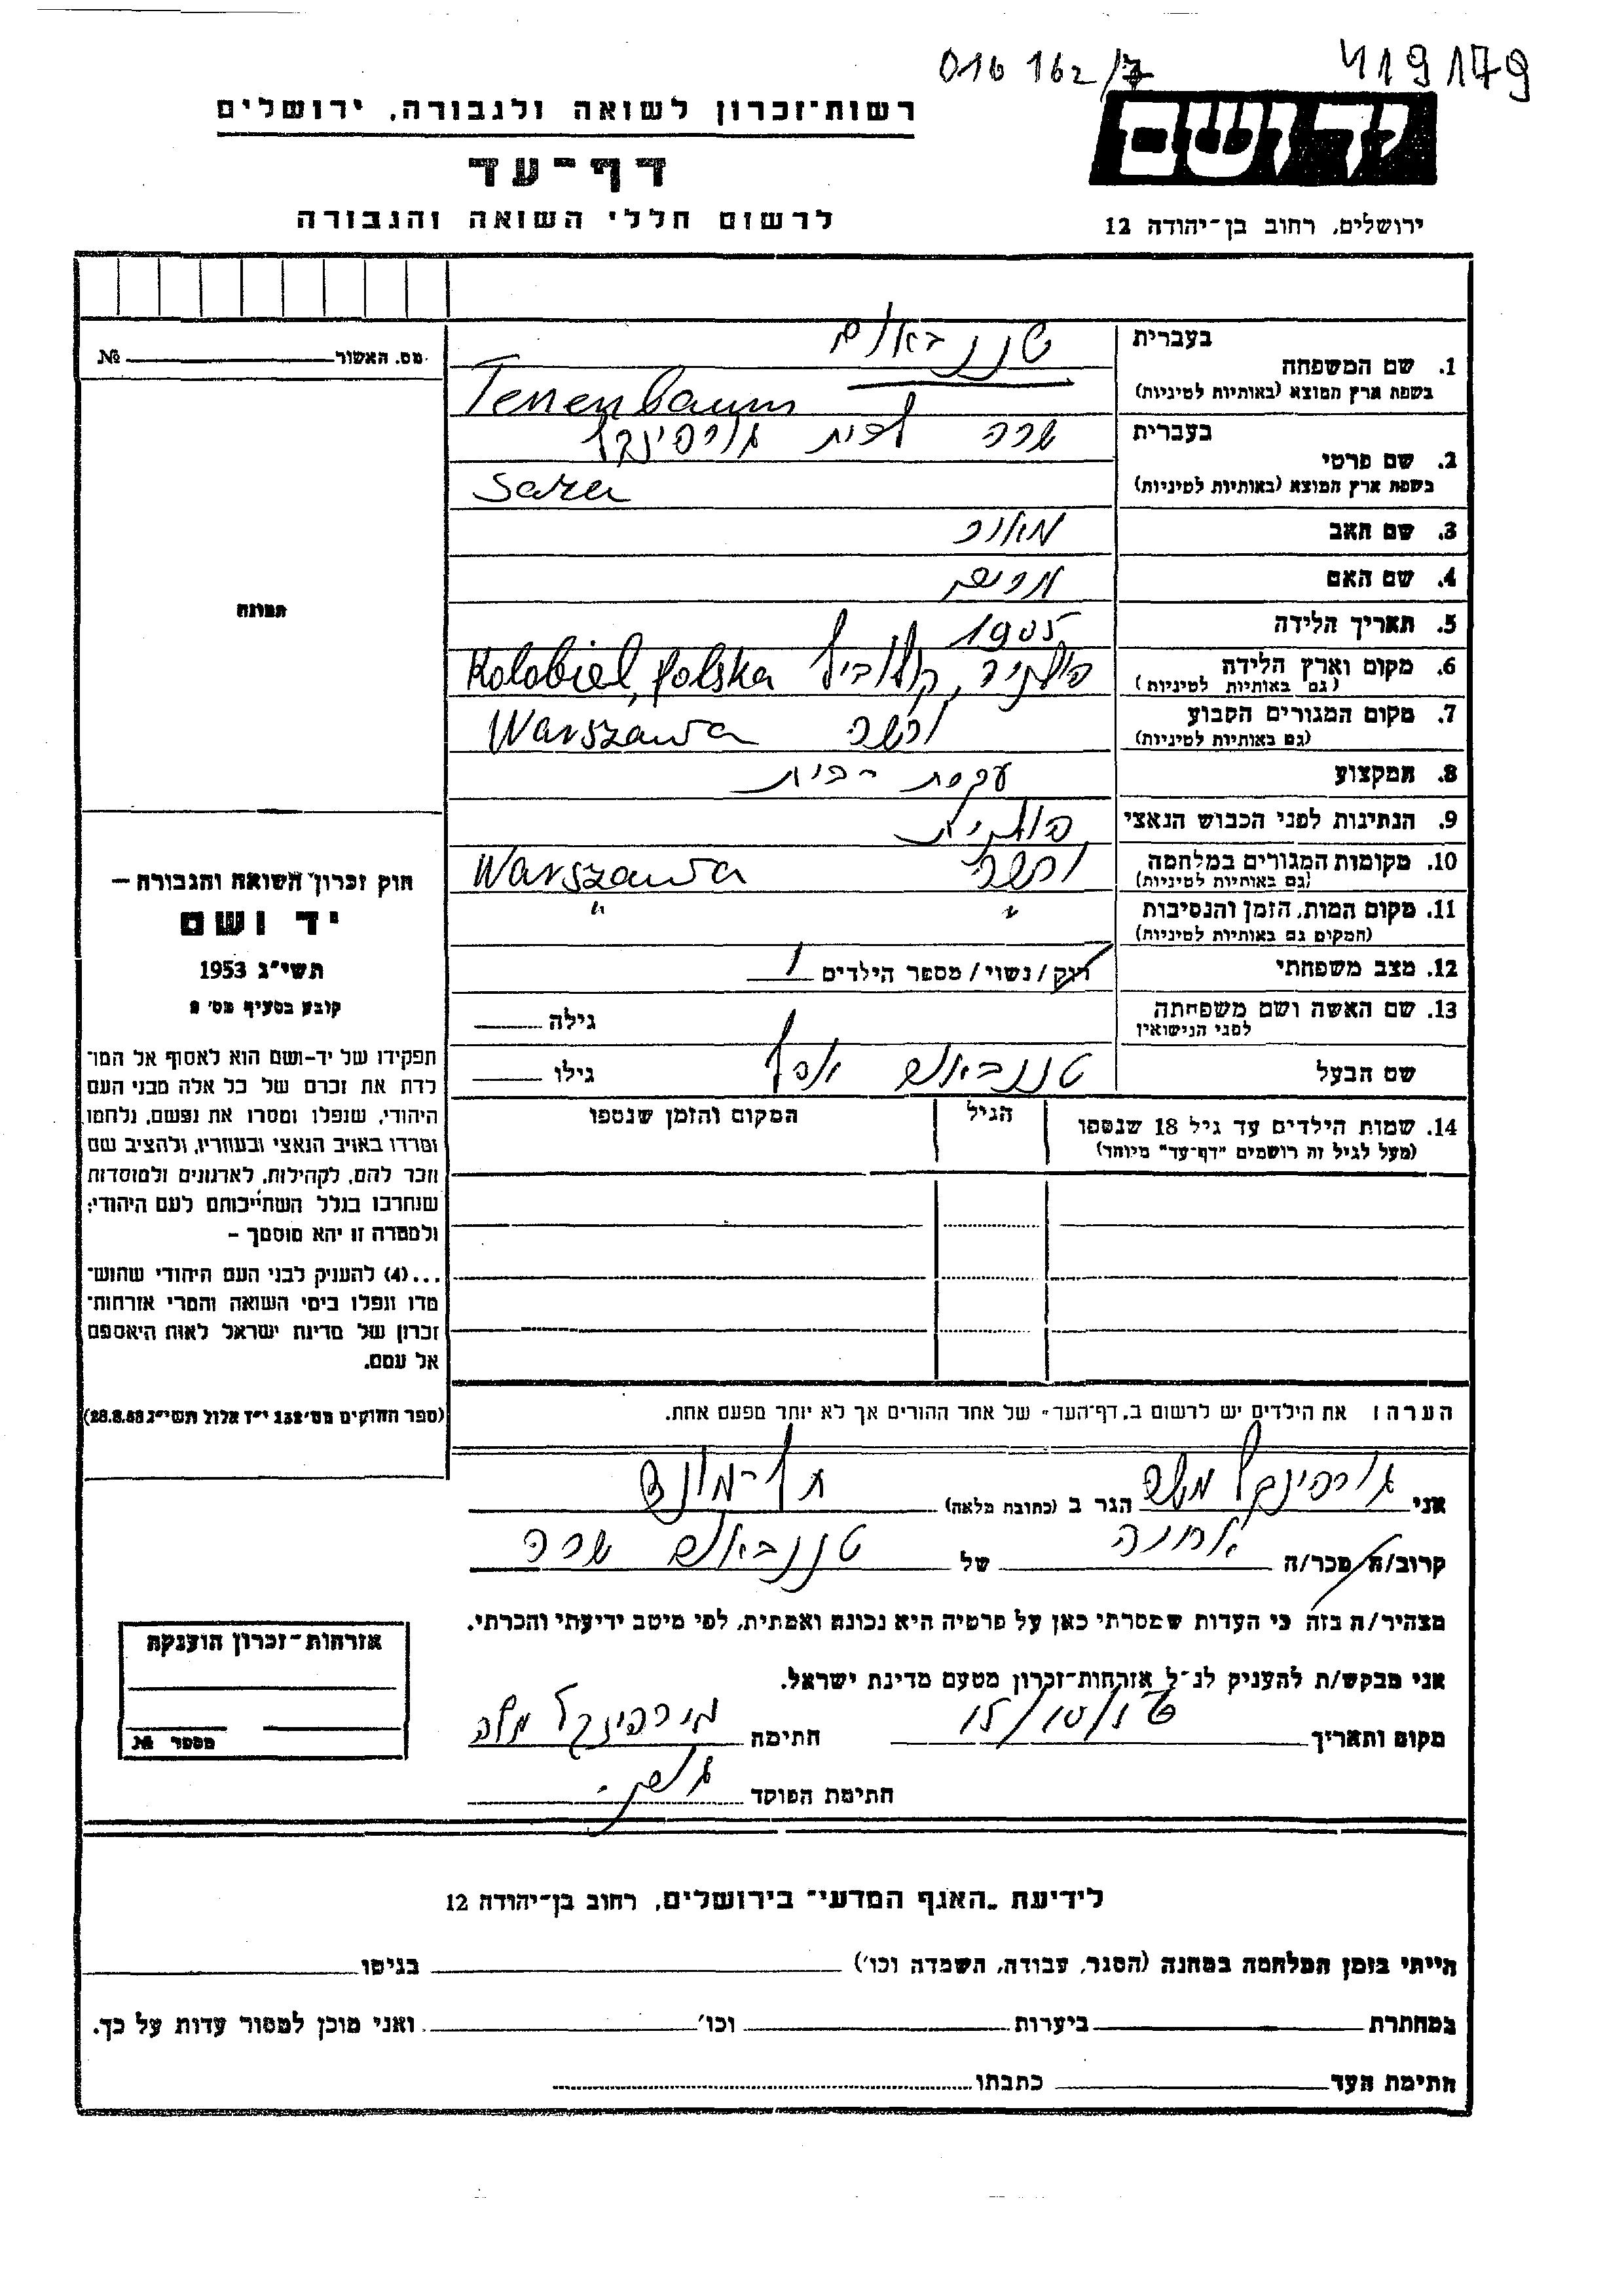 016 162/7 419179
רשות־זכרון לשואה ולגבורה, ירושלים
יד ושם
דף־עד
לרשום חללי השואה והגבורה
ירושלים, רחוב בן־יהודה 12
בעברית
1. שם המשפחה
בשפת ארץ המוצא (באותיות לטיניות)
טננבאום
Tenenbaum
מס. האשור №
בעברית
2. שם פרטי
בשפת ארץ המוצא (באותיות לטיניות)
שרה לבית גורפינקל
Sara
3. שם האב מאיר
4. שם האם מרים
תמונה
5. תאריך הלידה 1905
6. מקום וארץ הלידה
(גם באותיות לטיניות)
פולניה, קולוביל Kolobiel, Polska
7. מקום המגורים הקבוע
(גם באותיות לטיניות)
ורשה Warszawa
8. המקצוע עקרת־בית
9. הנתינות לפני הכבוש הנאצי פולנית
10. מקומות המגורים במלחמה
(גם באותיות לטיניות)
ורשה Warszawa
11. מקום המות, הזמן והנסיבות
(המקום גם באותיות לטיניות)
" "
12. מצב משפחתי רוק/נשוי/מספר הילדים 1
13. שם האשה ושם משפחתה
לפני הנישואין
גילה
שם הבעל טננבאום יוסף גילו
14. שמות הילדים עד גיל 18 שנספו
(מעל לגיל זה רושמים "דף־עד" מיוחד)
הגיל
המקום והזמן שנספו
הערה: את הילדים יש לרשום ב„דף־העד" של אחד ההורים אך לא יותר מפעם אחת.
חוק זכרון השואה והגבורה —
יד ושם
תשי"ג 1953
קובע בסעיף מס' 2
תפקידו של יד־ושם הוא לאסוף אל המו־
לדת את זכרם של כל אלה מבני העם
היהודי, שנפלו ומסרו את נפשם, נלחמו
ומרדו באויב הנאצי ובעוזריו, ולהציב שם
וזכר להם, לקהילות, לארגונים ולמוסדות
שנחרבו בגלל השתייכותם לעם היהודי;
ולמטרה זו יהא מוסמך –
...(4) להעניק לבני העם היהודי שהוש־
מדו ונפלו בימי השואה והמרי אזרחות־
זכרון של מדינת ישראל לאות היאספם
אל עמם.
(ספר החוקים מס' 132 י"ז אלול תשי"ג 28.8.53)
אני גורפינקל משה הגר ב (כתובת מלאה) תל־מונד
קרוב/ה מכר/ה אחיה של טננבאום שרה
מצהיר/ה בזה כי העדות שמסרתי כאן על פרטיה היא נכונה ואמתית, לפי מיטב ידיעתי והכרתי.
אני מבקש/ת להעניק לנ"ל אזרחות־זכרון מטעם מדינת ישראל.
מקום ותאריך חתימה גורפינקל משה
חתימת הפוקד
אזרחות־זכרון הוענקה
מספר №
לידיעת „האגף המדעי" בירושלים, רחוב בן־יהודה 12
הייתי בזמן המלחמה במחנה (הסגר, עבודה, השמדה וכו') בגיטו
במחתרת ביערות וכו' ואני מוכן למסור עדות על כך.
חתימת העד כתבתו